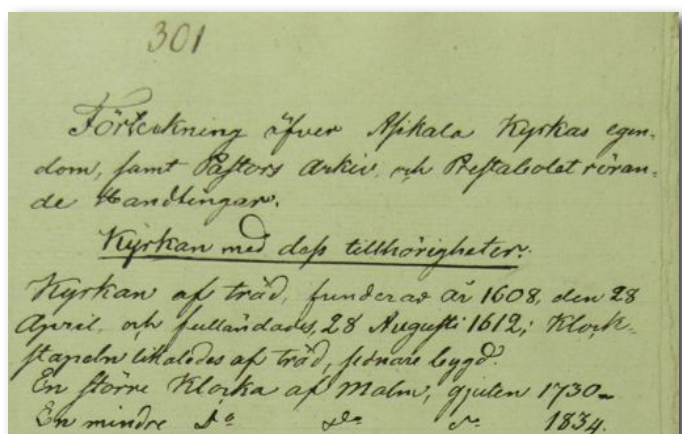 301
Förteckning öfver Asikala Kyrkas egen-
dom, samt Pastors Arkiv och Prestabolet röran-
de Handlingar.
Kyrkan med dess tillhörigheter.
Kyrkan af träd, funderad år 1608, den 28
April och fulländades, 28 Augusti 1612; Klock-
stapeln likaledes af träd, sednare bygd.
En större Klocka af Malm, gjuten 1730-
En mindre Do Do Do 1834.